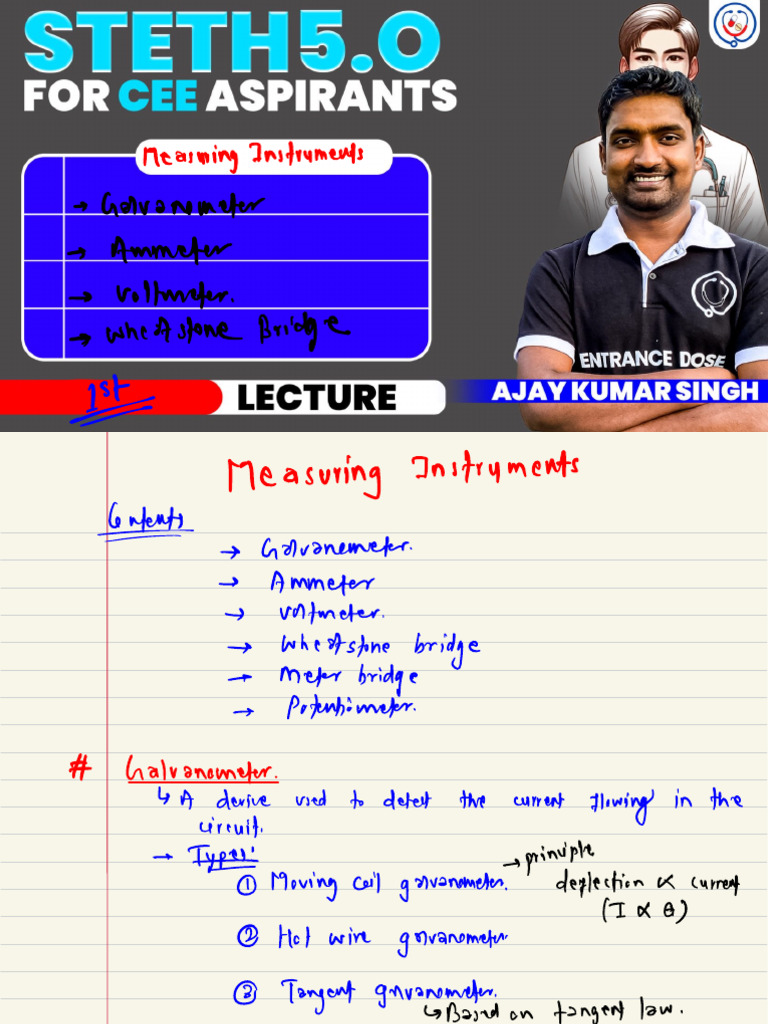 STETH 5.0
FOR CEE ASPIRANTS
Measuring Instruments
→ Galvanometer
→ Ammeter
→ Voltmeter.
→ Wheatstone Bridge
ENTRANCE DOSE
1st LECTURE
AJAY KUMAR SINGH
Measuring Instruments
Contents
→ Galvanometer.
→ Ammeter
→ Voltmeter.
→ Wheatstone bridge
→ Meter bridge
→ Potentiometer.
# Galvanometer.
↳ A device used to detect the current flowing in the
circuit.
→ Types:
① Moving coil galvanometer. → principle
deflection ∝ current
(I ∝ θ)
② Hot wire galvanometer
③ Tangent galvanometer.
↳ Based on tangent law.